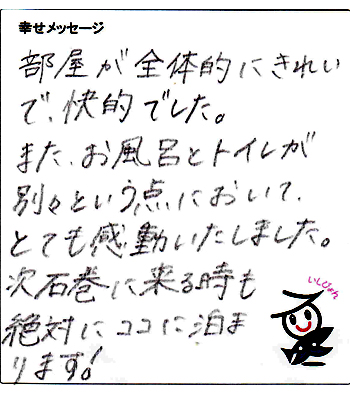 幸せメッセージ
部屋が全体的にきれい
で、快的でした。
また、お風呂とトイレが
別々という点において、
とても感動いたしました。
次石巻に来る時も
絶対にココに泊ま
ります!
いしぴょん